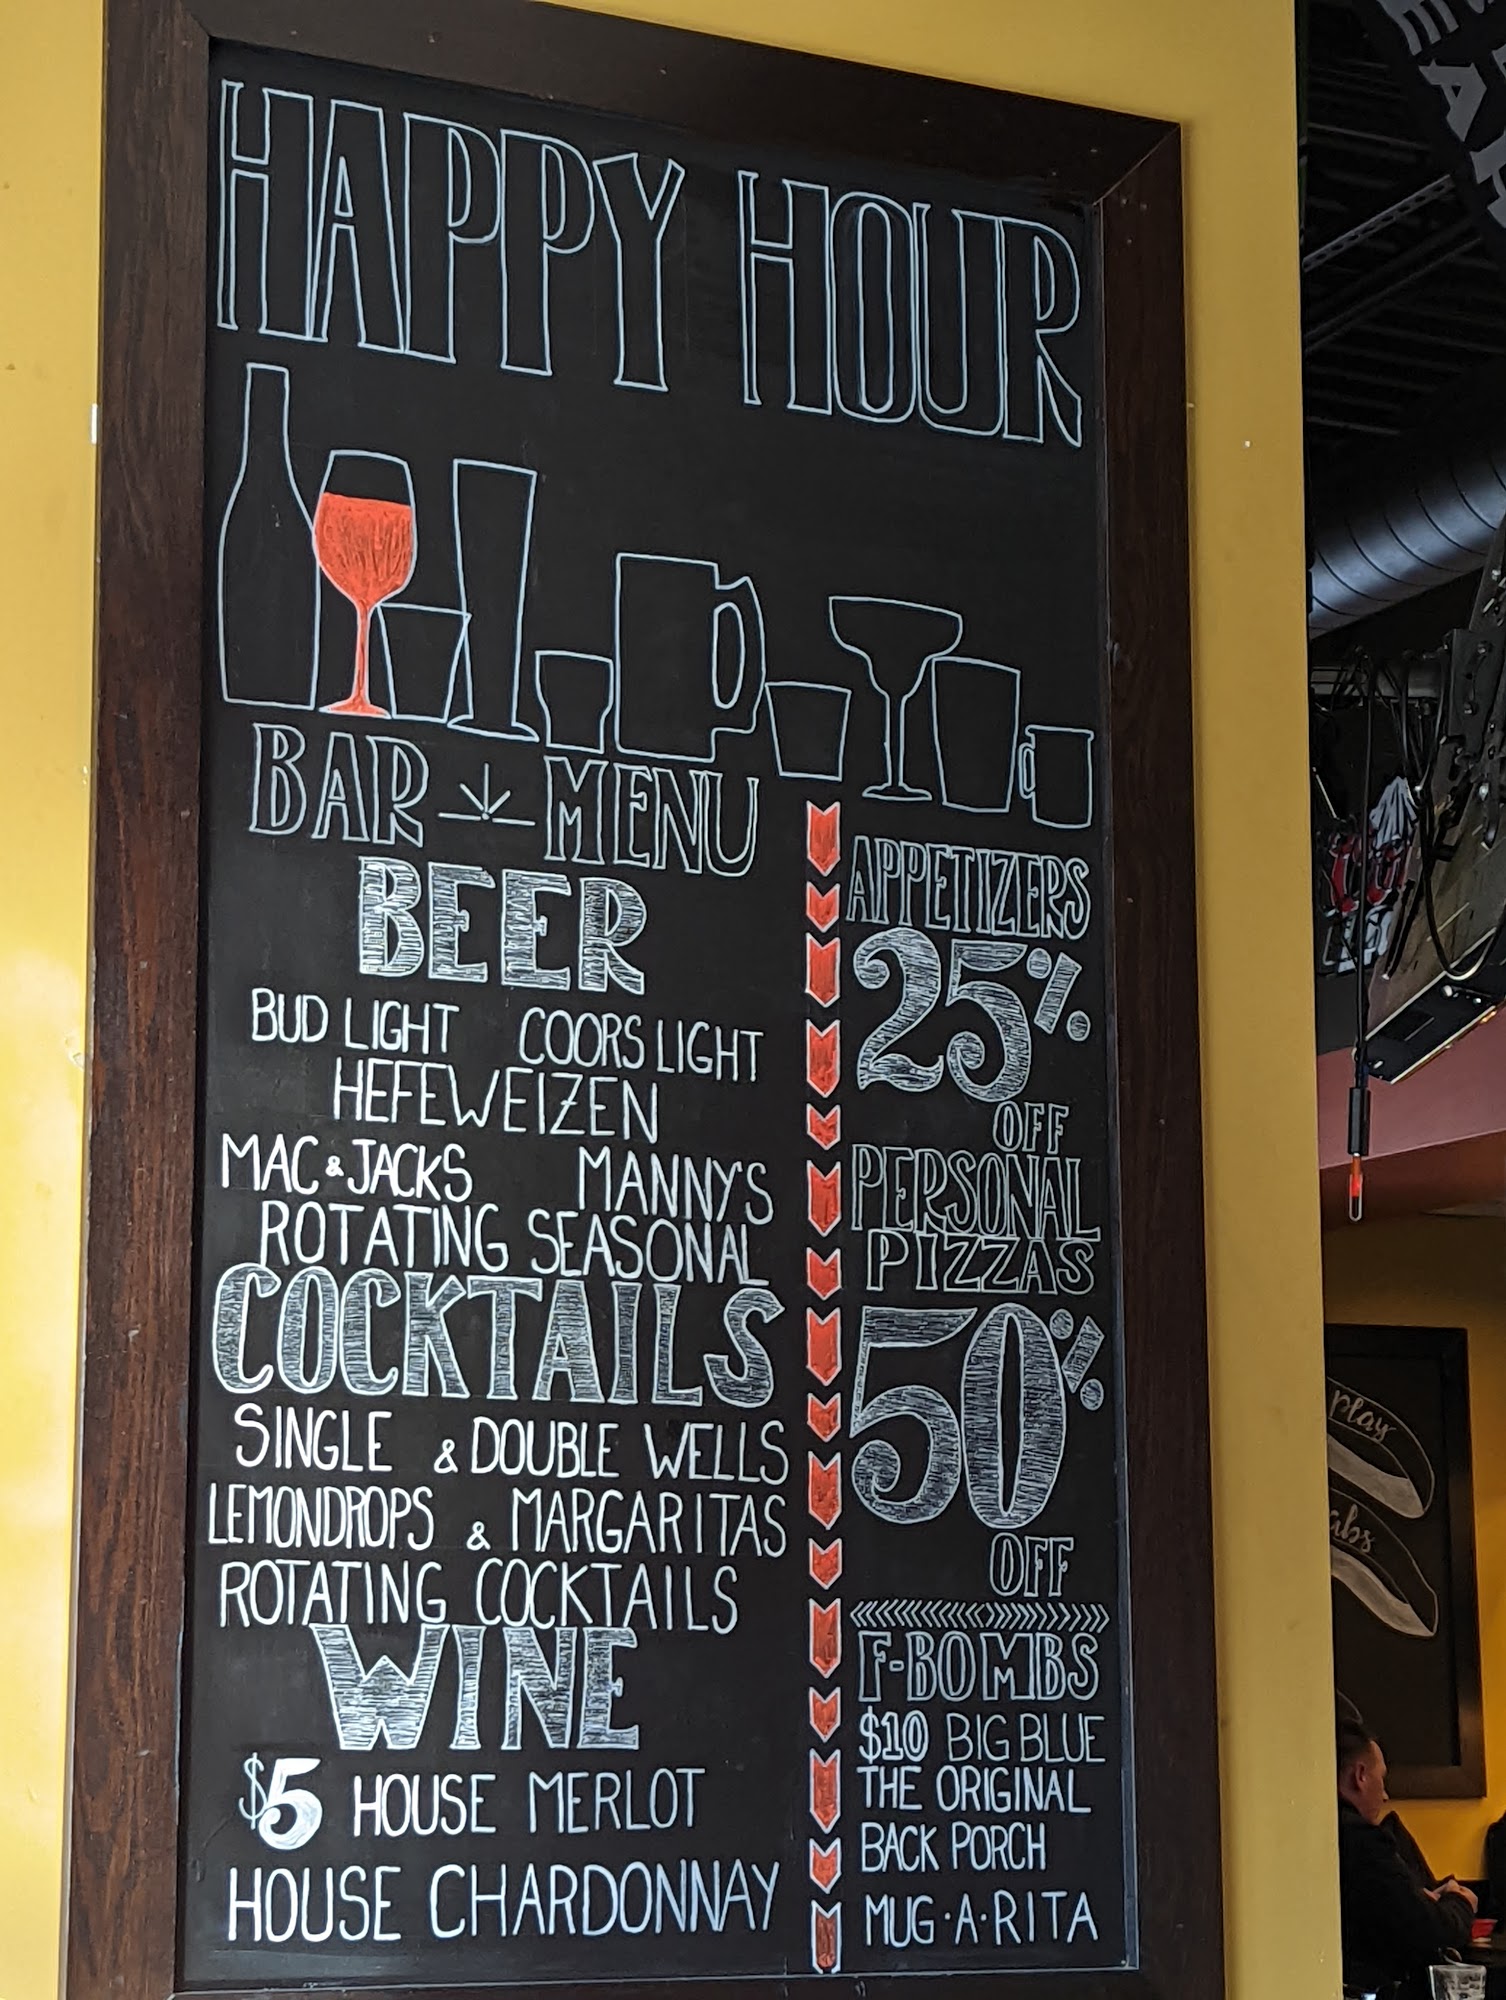 HAPPY HOUR
BAR MENU
BEER
BUD LIGHT COORS LIGHT
HEFEWEIZEN
MAC & JACKS MANNY'S
ROTATING SEASONAL
COCKTAILS
SINGLE & DOUBLE WELLS
LEMONDROPS & MARGARITAS
ROTATING COCKTAILS
WINE
$5 HOUSE MERLOT
HOUSE CHARDONNAY
APPETIZERS
25%
OFF
PERSONAL
PIZZAS
50%
OFF
F-BOMBS
$10 BIG BLUE
THE ORIGINAL
BACK PORCH
MUG·A·RITA
play